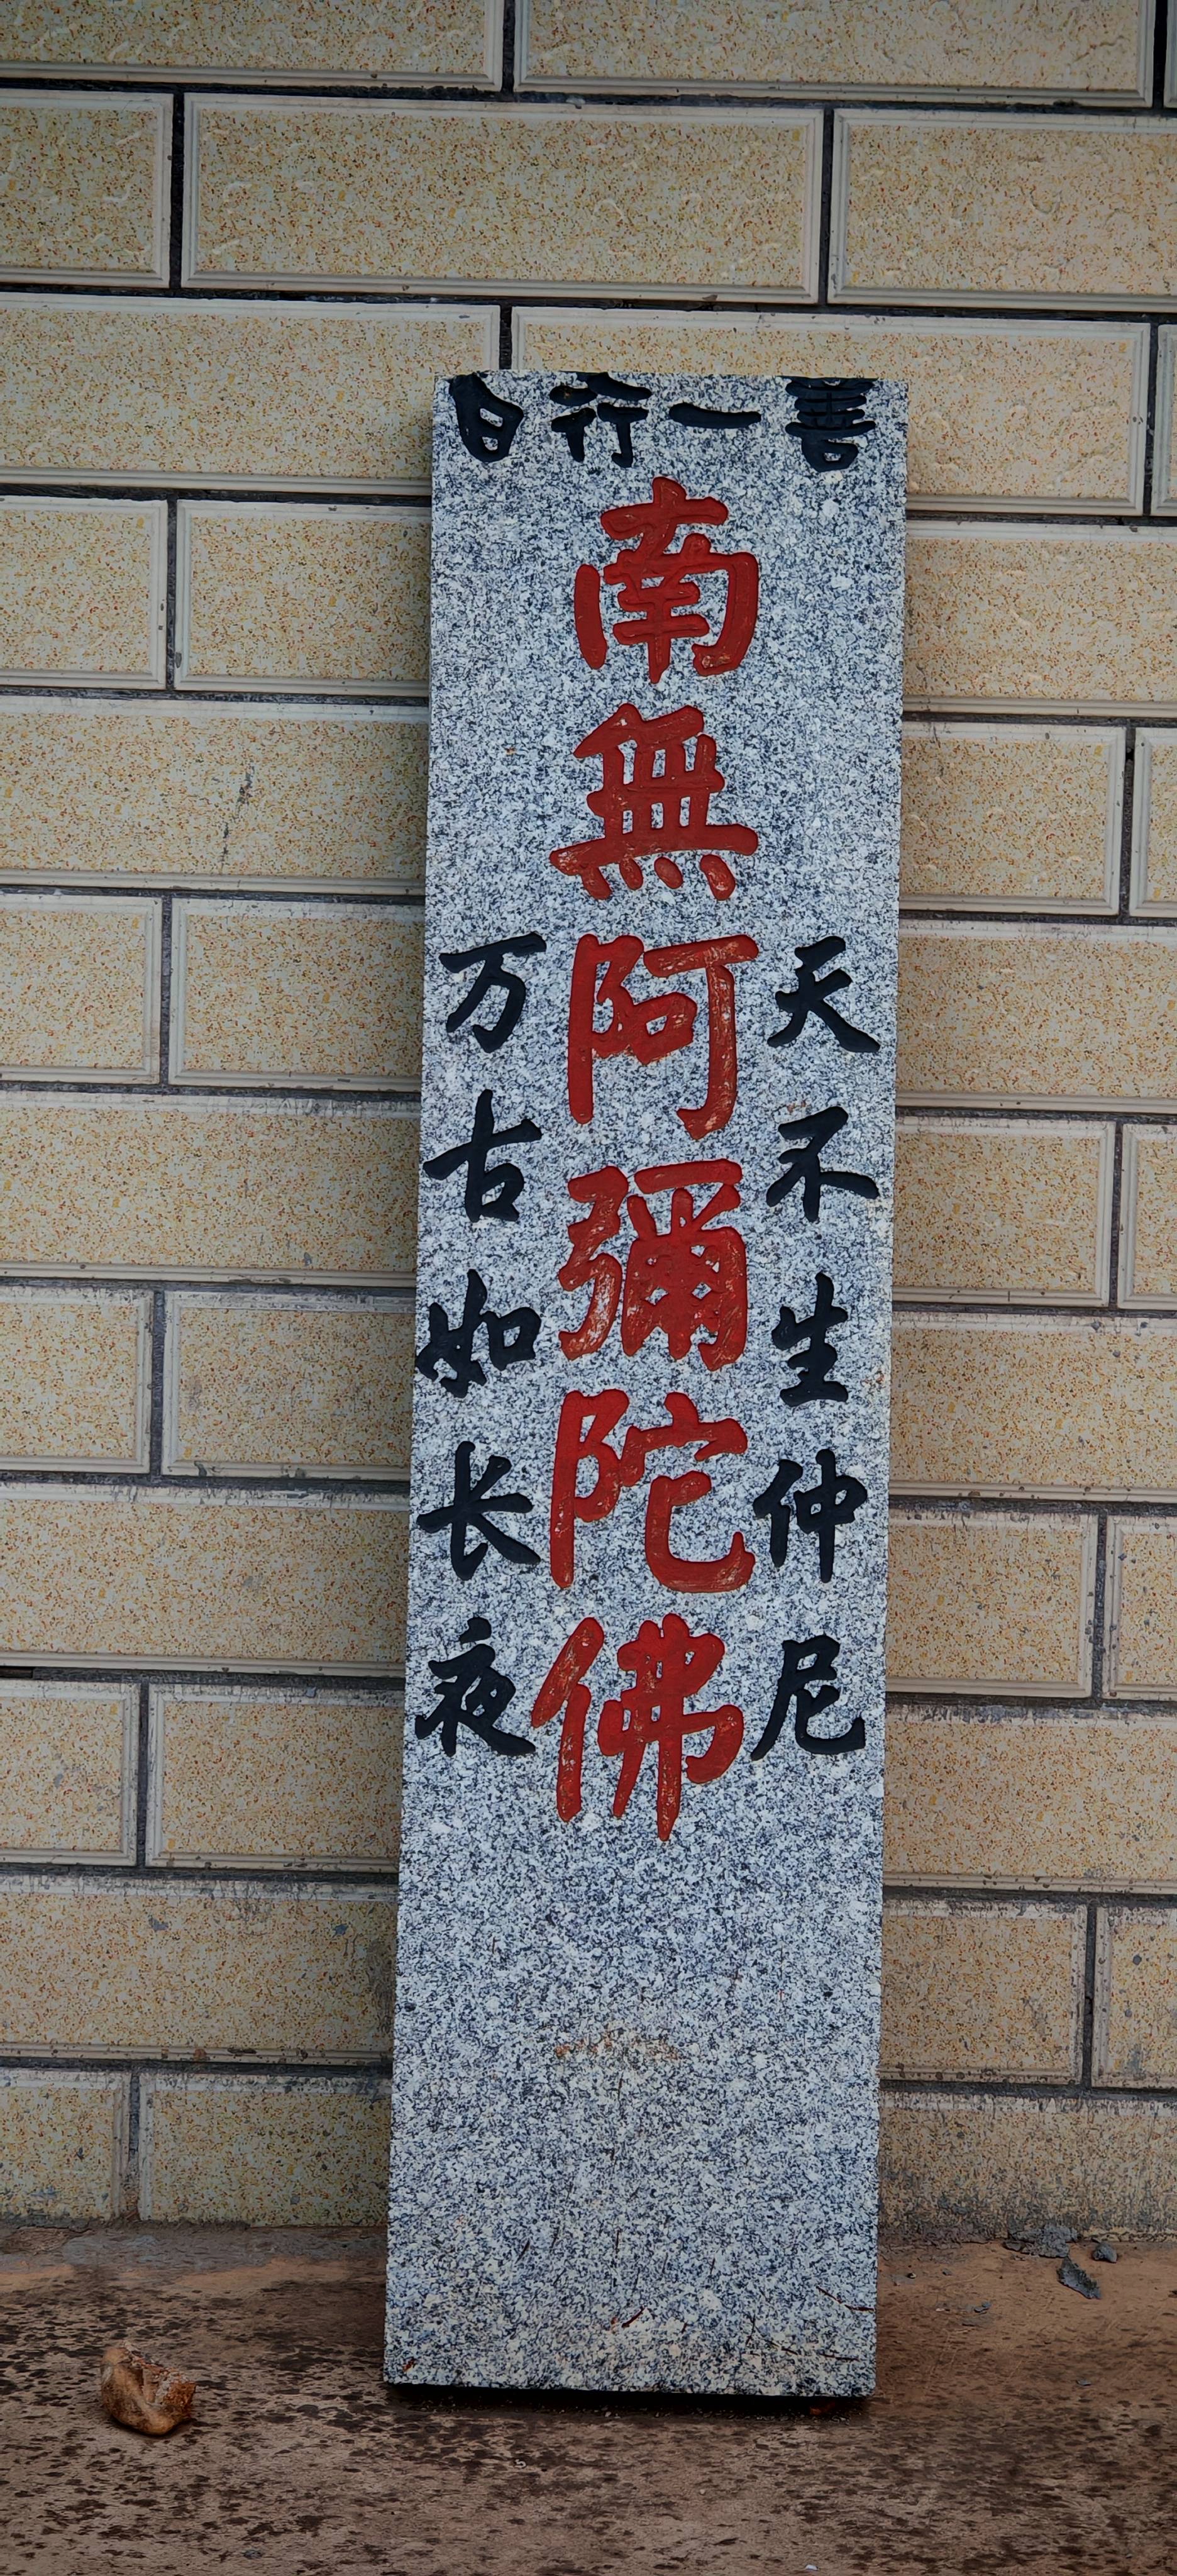 日行一善
天不生仲尼
南無阿彌陀佛
万古如长夜